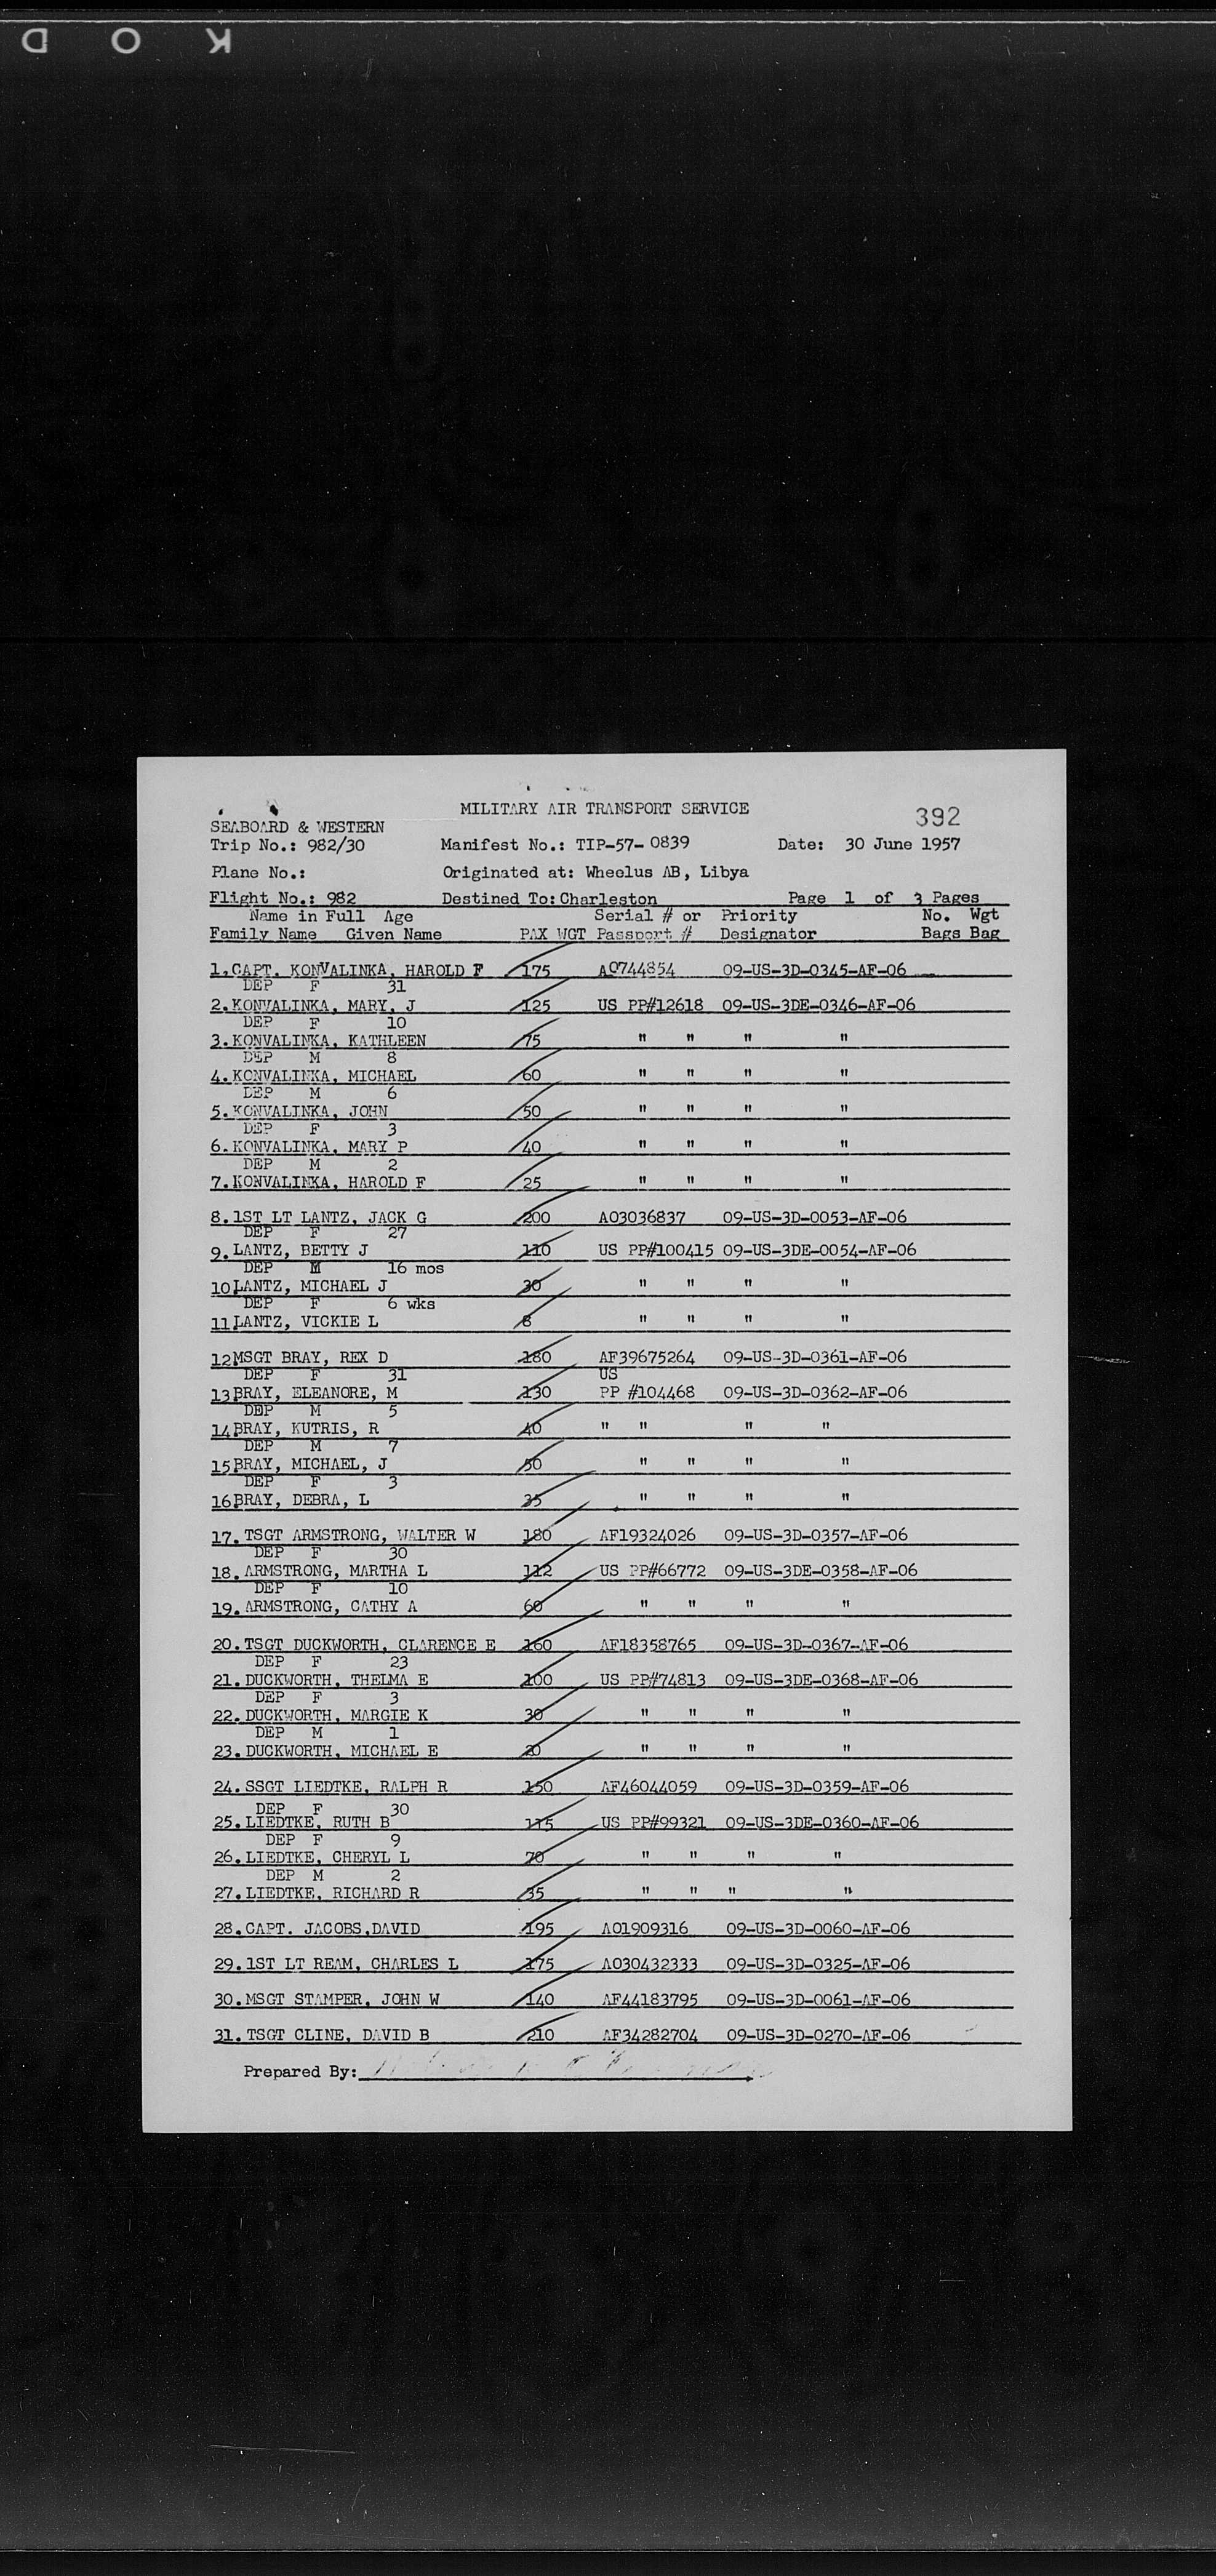 K O D
MILITARY AIR TRANSPORT SERVICE
392
SEABOARD & WESTERN
Trip No.: 982/30 Manifest No.: TIP-57-0839 Date: 30 June 1957
Plane No.: Originated at: Wheelus AB, Libya
Flight No.: 982 Destined To: Charleston Page 1 of 3 Pages
Name in Full Age Serial # or Priority No. Wgt
Family Name Given Name PAX WGT Passport # Designator Bags Bag
1. CAPT. KONVALINKA, HAROLD F 175 AO744854 09-US-3D-0345-AF-06
DEP F 31
2. KONVALINKA, MARY, J 125 US PP#12618 09-US-3DE-0346-AF-06
DEP F 10
3. KONVALINKA, KATHLEEN 75 " " " "
DEP M 8
4. KONVALINKA, MICHAEL 60 " " " "
DEP M 6
5. KONVALINKA, JOHN 50 " " " "
DEP F 3
6. KONVALINKA, MARY P 40 " " " "
DEP M 2
7. KONVALINKA, HAROLD F 25 " " " "
8. 1ST LT LANTZ, JACK G 200 AO3036837 09-US-3D-0053-AF-06
DEP F 27
9. LANTZ, BETTY J 110 US PP#100415 09-US-3DE-0054-AF-06
DEP M 16 mos
10 LANTZ, MICHAEL J 30 " " " "
DEP F 6 wks
11 LANTZ, VICKIE L 8 " " " "
12 MSGT BRAY, REX D 180 AF39675264 09-US-3D-0361-AF-06
DEP F 31 US
13 BRAY, ELEANORE, M 130 PP #104468 09-US-3D-0362-AF-06
DEP M 5
14 BRAY, KUTRIS, R 40 " " " "
DEP M 7
15 BRAY, MICHAEL, J 50 " " " "
DEP F 3
16 BRAY, DEBRA, L 35 " " " "
17. TSGT ARMSTRONG, WALTER W 180 AF19324026 09-US-3D-0357-AF-06
DEP F 30
18. ARMSTRONG, MARTHA L 112 US PP#66772 09-US-3DE-0358-AF-06
DEP F 10
19. ARMSTRONG, CATHY A 60 " " " "
20. TSGT DUCKWORTH, CLARENCE E 160 AF18358765 09-US-3D-0367-AF-06
DEP F 23
21. DUCKWORTH, THELMA E 100 US PP#74813 09-US-3DE-0368-AF-06
DEP F 3
22. DUCKWORTH, MARGIE K 30 " " " "
DEP M 1
23. DUCKWORTH, MICHAEL E 20 " " " "
24. SSGT LIEDTKE, RALPH R 150 AF46044059 09-US-3D-0359-AF-06
DEP F 30
25. LIEDTKE, RUTH B 115 US PP#99321 09-US-3DE-0360-AF-06
DEP F 9
26. LIEDTKE, CHERYL L 70 " " " "
DEP M 2
27. LIEDTKE, RICHARD R 35 " " " "
28. CAPT. JACOBS, DAVID 195 AO1909316 09-US-3D-0060-AF-06
29. 1ST LT REAM, CHARLES L 175 AO30432333 09-US-3D-0325-AF-06
30. MSGT STAMPER, JOHN W 140 AF44183795 09-US-3D-0061-AF-06
31. TSGT CLINE, DAVID B 210 AF34282704 09-US-3D-0270-AF-06
Prepared By: